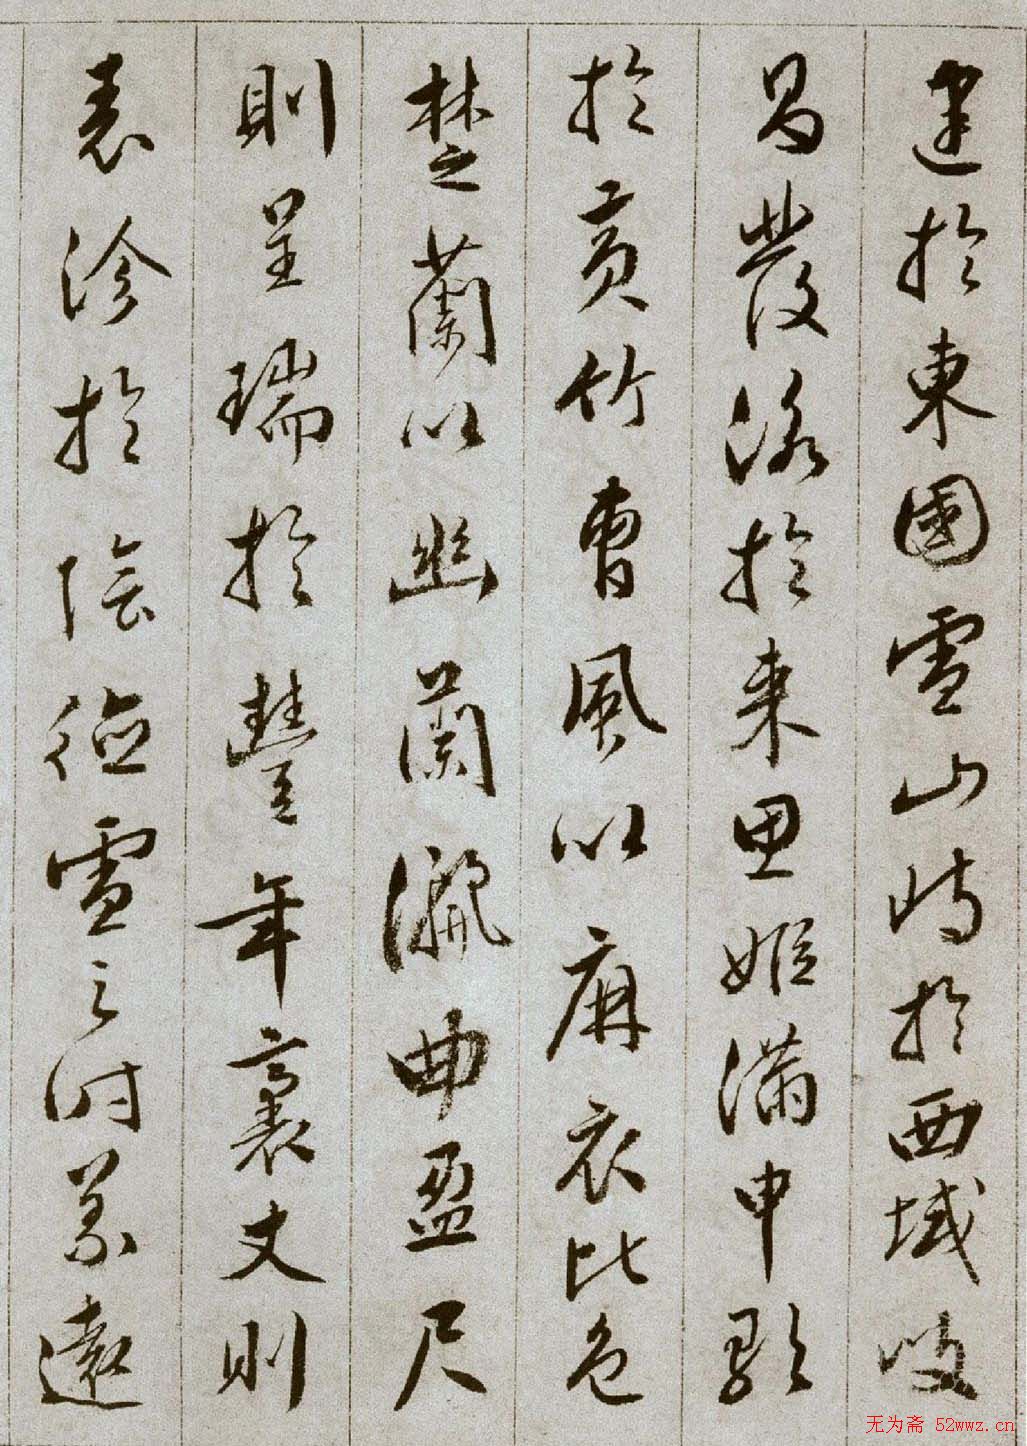 建於東國雪山峙於西域岐
昌發詠於來思姬滿申歌
於黃竹曹風以麻衣比色
楚蘭以幽蘭灑曲盈尺
則呈瑞於豐年袤丈則
表沴於陰德雪之時義遠
无为斋 52wwz.cn